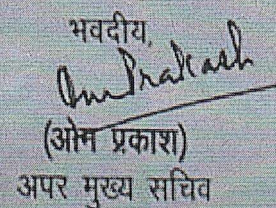 भवदीय,
Om Prakash
(ओम प्रकाश)
अपर मुख्य सचिव